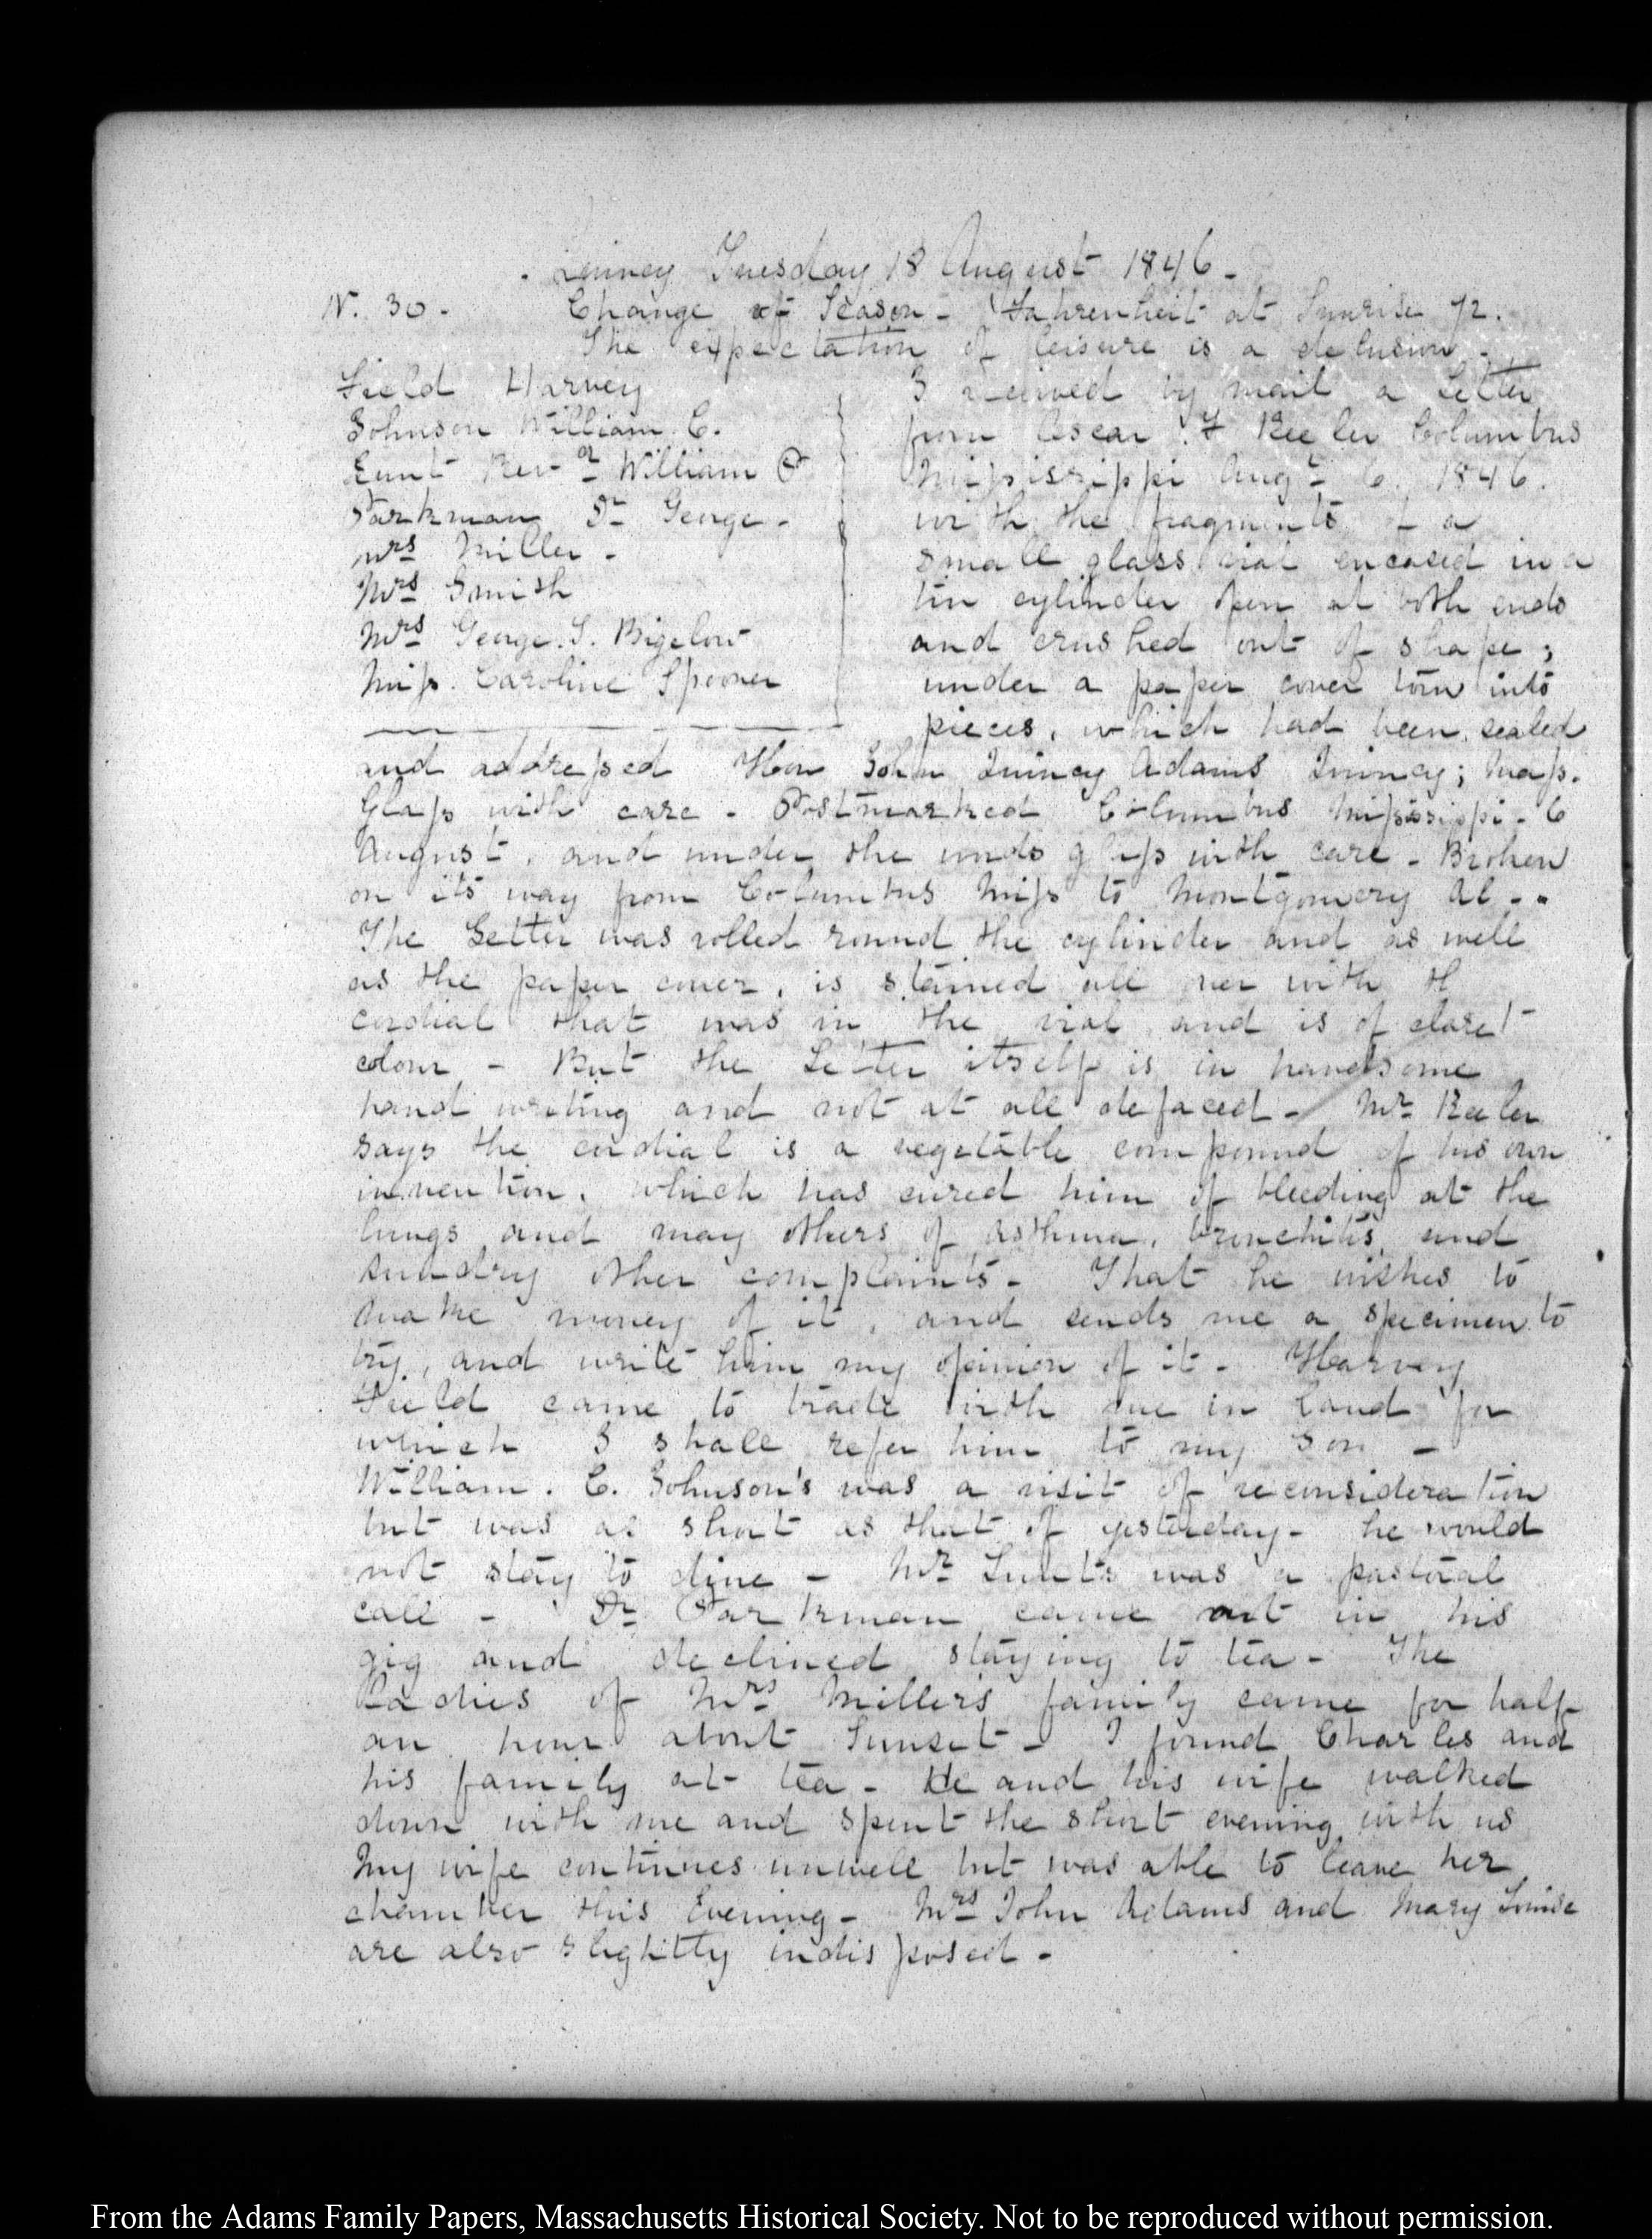 Quincy Tuesday 18 August 1846-
N. 30. Change of Season- Fahrenheit at Sunrise 72.
The expectation of leisure is a delusion.
Field Harvey
Johnson William C.
Lunt Revd William P
Parkman Dr George-
Mrs Miller-
Mrs Smith
Mrs George. T. Bigelow
Miss. Caroline Spooner
I received by mail a Letter
from Oscar. F Keeler Columbus
Mississippi Augt 6. 1846.
with the fragments of a
small glass vial encased in a
tin cylinder open at both ends
and crushed out of shape;
under a paper cover torn into
pieces, which had been sealed
and addressed Hon John Quincy Adams Quincy; Mass.
Glass with care. Postmarked Columbus Mississippi- 6
August, and under the words glass with care- Broken
on its way from Columbus Miss to Montgomery Al..
The Letter was rolled round the cylinder and as well
as the paper cover, is stained all over with th
cordial that was in the vial and is of claret
colour- But the Letter itself is in handsome
hand writing and not at all defaced- Mr Keeler
says the cordial is a vegetable compound of his own
invention, which has cured him of bleeding at the
lungs and may others of asthma, bronchitis, and
sundry other complaints- That he wishes to
make money of it, and sends me a specimen to
try, and write him my opinion of it- Harvey
Field came to trade with me in land for
which I shall refer him to my Son-
William. C. Johnson's was a visit of reconsideration
but was as short as that of yesterday- he would
not stay to dine- Mr Lunt's was a pastoral
call- Dr Parkman came out in his
gig and declined staying to tea- The
Ladies of Mrs Millers family came for half
an hour about Sunset- I found Charles and
his family at tea- He and his wife walked
down with me and spent the short evening with us
My wife continues unwell but was able to leave her
chamber this Evening- Mrs John Adams and Mary Louisa
are also slightly indisposed-
From the Adams Family Papers, Massachusetts Historical Society. Not to be reproduced without permission.